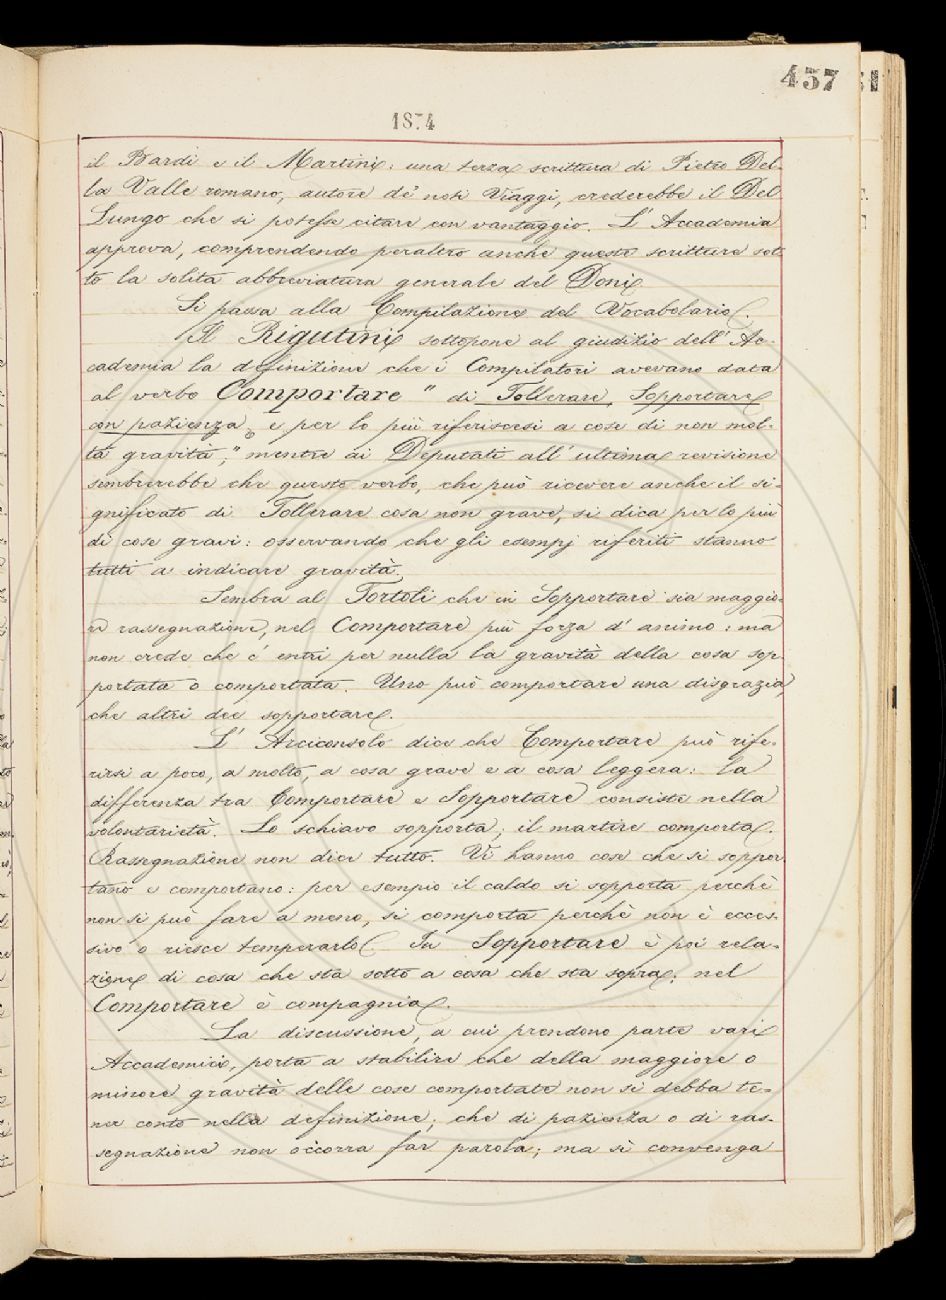 457
1874
il Bardi e il Martini: una terza scrittura di Pietro Del-
la Valle romano, autore de' noti Viaggi, crederebbe il Del
Lungo che si potesse citare con vantaggio. L'Accademia
approva, comprendendo peraltro anche queste scritture sot-
to la solita abbreviatura generale del Doni
Si passa alla Compilazione del Vocabolario.
Il Rigutini sottopone al giudizio dell'Ac-
cademia la definizione che i Compilatori avevano data
al verbo Comportare " di Tollerare, Sopportare
con pazienza, e per lo più riferiscesi a cose di non mol-
ta gravità;" mentre ai Deputati all'ultima revisione
sembrerebbe che questo verbo, che può ricevere anche il si-
gnificato di Tollerare cosa non grave, si dica per lo più
di cose gravi: osservando che gli esempj riferiti stanno
tutti a indicare gravità.
Sembra al Tortoli che in Sopportare sia maggio-
re rassegnazione, nel Comportare più forza d'animo: ma
non crede che c'entri per nulla la gravità della cosa sop-
portata o comportata. Uno può comportare una disgrazia,
che altri dee sopportare.
L'Arciconsolo dice che Comportare può rife-
rirsi a poco, a molto, a cosa grave e a cosa leggera: la
differenza tra Comportare e Sopportare consiste nella
volontarietà. Lo schiavo sopporta; il martire comporta.
Rassegnazione non dice tutto. Vi hanno cose che si soppor-
tano e comportano: per esempio il caldo si sopporta perchè
non si può fare a meno, si comporta perchè non è ecces-
sivo o riesce temperarlo. In Sopportare è poi rela-
zione di cosa che sta sotto a cosa che sta sopra; nel
Comportare è compagnia.
La discussione, a cui prendono parte vari
Accademici, porta a stabilire che della maggiore o
minore gravità delle cose comportate non si debba te-
ner conto nella definizione; che di pazienza o di ras-
segnazione non occorra far parola; ma si convenga